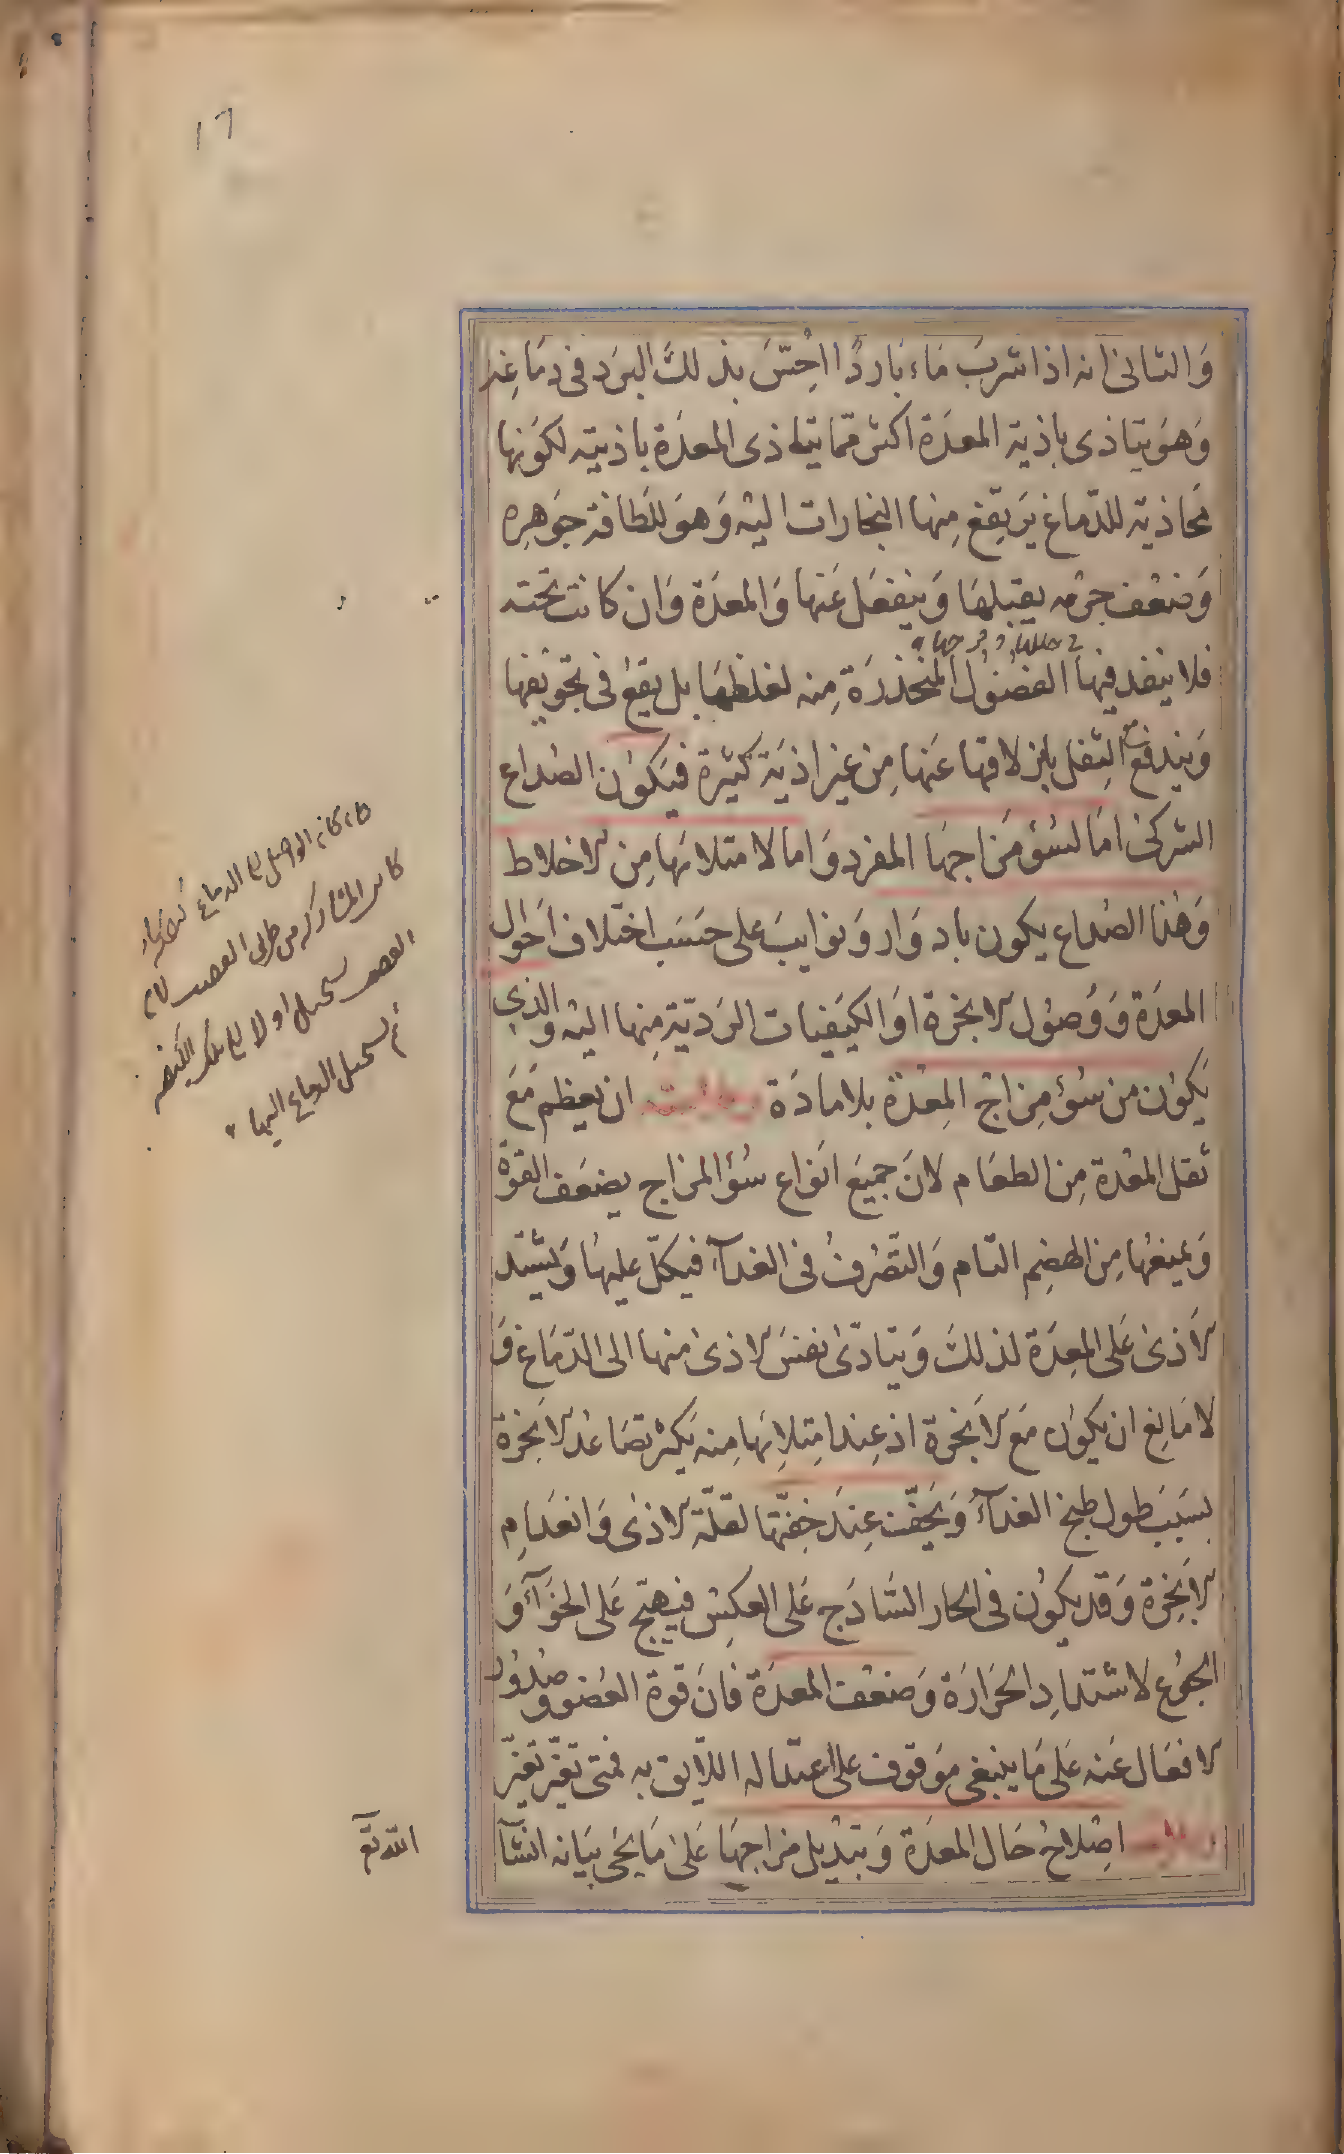 ١٦
وَالثانى انه اذا شربَ مَاء بَاردًا احْتسَّ بذلكَ البرَد فى دمَاغِه
وَهوَ يتاذى باذية المعدَة اكثر ممّا يتاذى المعدَة باذيته لكوَنها
محَاذية للدّماغ يَرتِفع مِنها البخارات اليْه وَهوَ للَطافة جوَهرِه
وَضعْف جرْمه يقبلهَا وَينفعَل عَنها وَالمعدَة وَان كانت تحَته
فى خللها و فرجها
فلا ينفد فيها الفضوُل المنحَدرَة مِنه لغلظهَا بل يقعْ فى تجوَيفها
وَيندفعْ الثِفل بانزلاقها عَنها مِن غيَر اذيَة كثيَرة فيَكوُن الصُداع
الشركى امَا لسُؤ مزَاجهَا المفرد وَاما لامتلائهَا مِن الاخلاط
وَهٰذا الصُداع يكون بادوَار وَنوَايبَ على حسَب اختلاف احَوال
المعدَة وَوُصوُل الابخرَة اوَ الكيَفيات الرَديّة مِنها اليْه وَالذى
يَكوُن من سُؤ مِزاج المِعْدَة بلا مادَة وعلامته ان يعظم مَعَ
ثقل المعْدة مِن الطعَام لانَ جميعَ انوَاع سُؤ المزاج يضعَف القوّة
وَيمنعْها مِن الهضِم التام وَالتصَّرفُ فى الغدآء فيكلّ عليهَا وَيشتد
الاَذىٰ عَلى المعِدَة لذلكَ وَيتادّى نفسَ الاذى منها الى الدّمَاغ وَ
لا مَانِع ان يكوُن مَع الاَبخرة اذ عِند امتِلائهَا مِنه يَكثر تصَاعُد الابَخرَة
بسَببَ طول طبخ الغدآء وَيَخِفّ عِندَ خِفتّها لقلّة الاذىٰ وَانعدَامِ
الابَخِرَة وَقد يكوُن فى الحار السَّادَج عَلى العكسْ فيهيّج عَلى الخوَآء وَ
الجوُع لاشتدادِ الحَرارَة وَضعْف المعدَة فانَ قوة العُضو وَصُدوُر
الافعَال عَنه عَلى مَا ينبغى موَقوف على اعتداله اللآيق به فمتى تغيّر تغيّر
وعلاجه اصِلاحُ حَال المعدَة وَتبدْيل مزاجهَا عَلىٰ مَا يجَى بيَانه انشآ
الله تع
كان المشاركه من طريق العصب لان
العصب يستحيل اولا الى تلك الكيفيه
ثم يستحيل الدماغ اليها